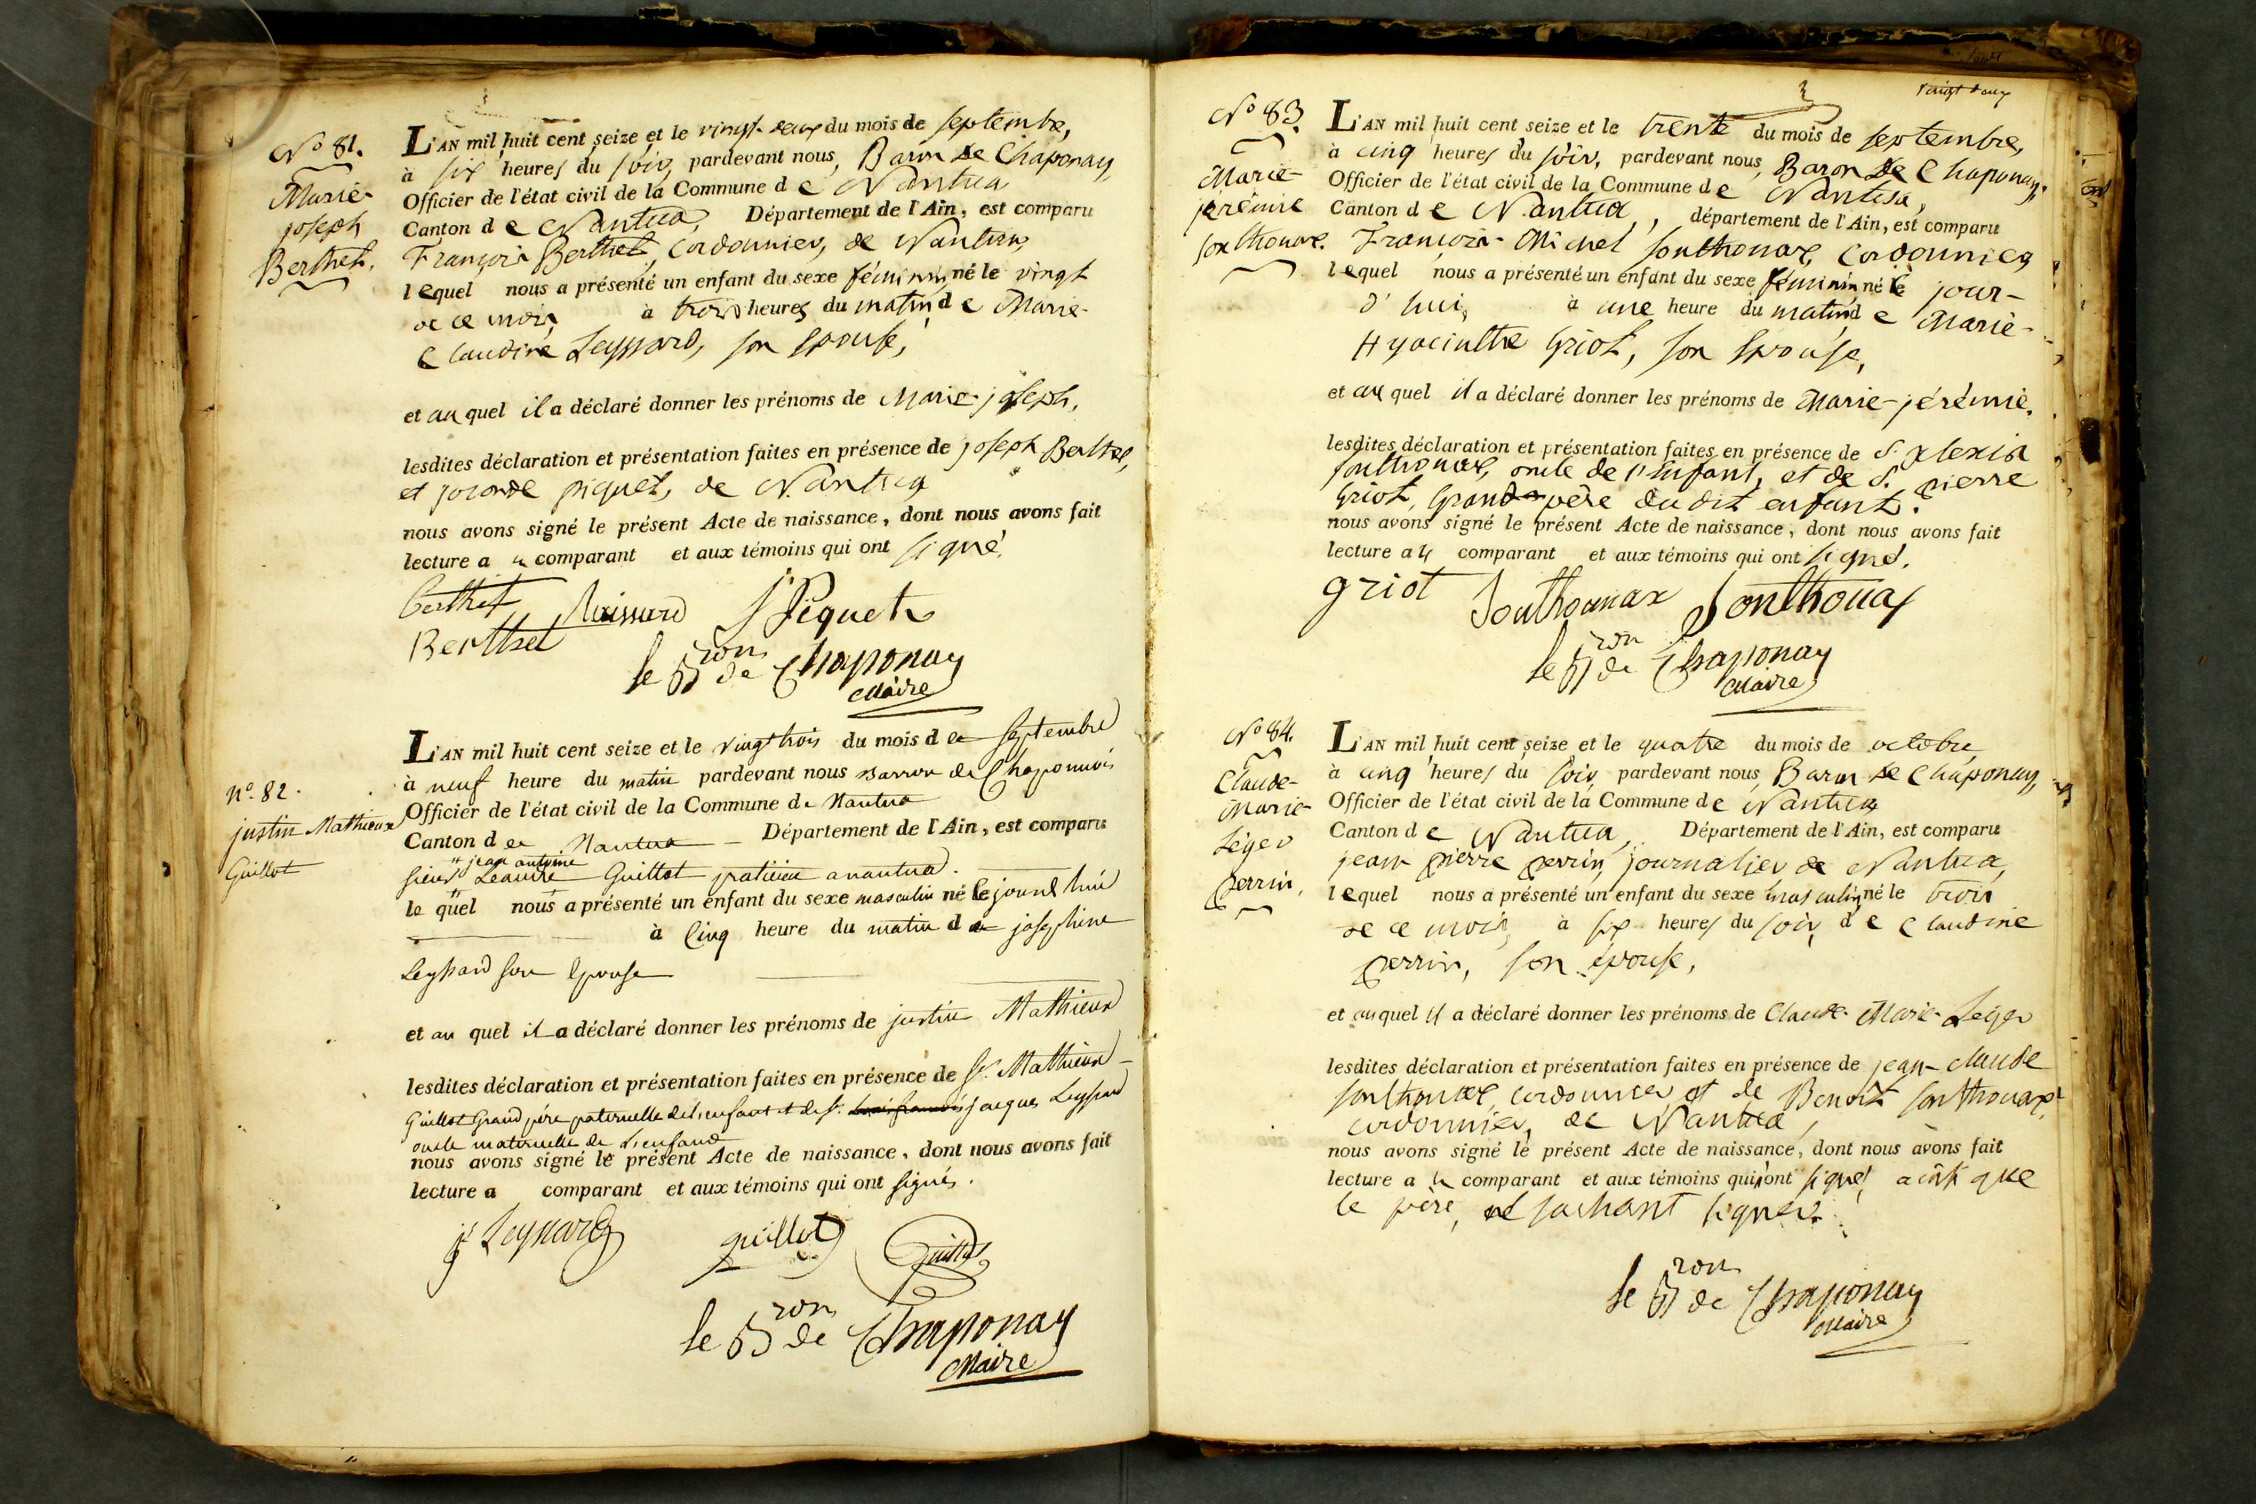 No 81.
Marie-
joseph
Berthet.
L'AN mil huit cent seize et le vingt-deux du mois de septembre,
à six heures du soir, pardevant nous, Baron de Chaponay,
Officier de l'état civil de la Commune de Nantua
Canton de Nantua, Département de l'Ain, est comparu
François Berthet, Cordonnier, de Nantua,
lequel nous a présenté un enfant du sexe féminin, né le vingt
de ce mois, à trois heures du matin, de Marie-
Claudine Leyssard, son Epouse,
et auquel il a déclaré donner les prénoms de Marie-joseph,
lesdites déclaration et présentation faites en présence de joseph Berthet,
et joconde piquet, de Nantua
nous avons signé le présent Acte de naissance, dont nous avons fait
lecture au comparant et aux témoins qui ont signé.
Berthet
J Piquet
Berthet
le Bron de Chaponay
Maire
No. 82.
justin Mathieux
Guillot
L'AN mil huit cent seize et le vingt trois du mois de Septembre
à neuf heure du matin pardevant nous Barron de Chaponais
Officier de l'état civil de la Commune de Nantua
Canton de Nantua Département de l'Ain, est comparu
jean antoine
sieur Guillot praticien a nantua.
le quel nous a présenté un enfant du sexe masculin né le jourd'hui
à Cinq heure du matin de josephine
Leyssard son Epouse
et au quel il a déclaré donner les prénoms de justin Mathieux
lesdites déclaration et présentation faites en présence de Sr. Mathieux
Guillot Grand père paternelle de l'enfant et de Sr. jacques Leyssard
oncle maternelle de l'enfant
nous avons signé le présent Acte de naissance, dont nous avons fait
lecture a comparant et aux témoins qui ont signés.
J Leyssard guillot Guillot
le Bron de Chaponay
Maire
Vingt deux
No 83.
Marie-
jérémie
Sonthonax.
L'AN mil huit cent seize et le trente du mois de septembre,
à cinq heures du soir, pardevant nous, Baron de Chaponay,
Officier de l'état civil de la Commune de Nantua,
Canton de Nantua, département de l'Ain, est comparu
François-Michel Sonthonax, Cordonnier
lequel nous a présenté un enfant du sexe féminin né le jour-
d'hui, à une heure du matin, de Marie-
Hyacinthe Griot, son Epouse,
et auquel il a déclaré donner les prénoms de Marie-jérémie.
lesdites déclaration et présentation faites en présence de S. Alexis
Sonthonax, oncle de l'Enfant, et de S. pierre
Griot, Grand-père du dit enfant.
nous avons signé le présent Acte de naissance, dont nous avons fait
lecture au comparant et aux témoins qui ont signé.
griot Southonnax Sonthonax
le Bron de Chaponay
Maire
No 84.
Claude-
Marie-
Léger
perrin.
L'AN mil huit cent seize et le quatre du mois de octobre,
à cinq heures du soir, pardevant nous, Baron de Chaponay,
Officier de l'état civil de la Commune de Nantua
Canton de Nantua, Département de l'Ain, est comparu
jean pierre perrin, journalier de Nantua,
lequel nous a présenté un enfant du sexe masculin, né le trois
de ce mois, à six heures du soir, de Claudine
perrin, son épouse,
et auquel il a déclaré donner les prénoms de Claude-Marie-Léger
lesdites déclaration et présentation faites en présence de jean-claude
Sonthonax, cordonnier et de Benoit Sonthonax,
cordonnier, de Nantua,
nous avons signé le présent Acte de naissance, dont nous avons fait
lecture au comparant et aux témoins qui ont signé
le père, ne sachant signer.
le Bron de Chaponay
Maire